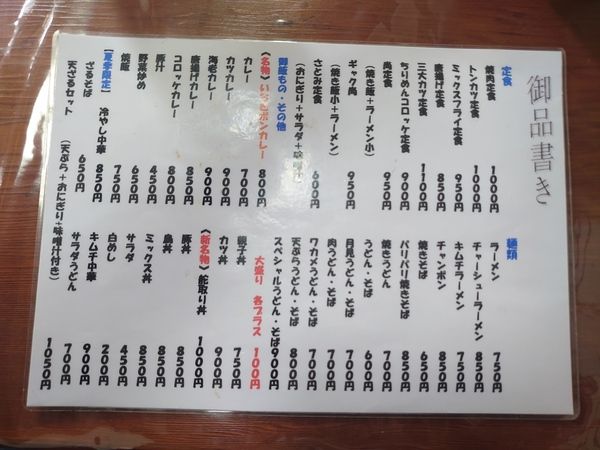 御品書き
定食
焼肉定食 1000円
トンカツ定食 1000円
ミックスフライ定食 950円
唐揚げ定食 850円
三大カツ定食 1100円
ちりめんコロッケ定食 900円
尚定食 950円
(焼き飯+ラーメン小)
ギャク尚 950円
(焼き飯小+ラーメン)
さとみ定食 600円
(おにぎり+サラダ+味噌汁)
御飯もの・その他
《名物》いちびボンカレー 800円
カレー 700円
カツカレー 900円
海老カレー 900円
唐揚げカレー 850円
コロッケカレー 800円
豚汁 450円
野菜炒め 650円
焼飯 750円
【夏季限定】冷やし中華 850円
ざるそば 650円
天ざるセット (天ぷら+おにぎり+味噌汁付き) 1050円
麺類
ラーメン 750円
チャーシューラーメン 850円
キムチラーメン 750円
チャンポン 850円
焼きそば 650円
バリバリ焼きそば 850円
焼きうどん 700円
うどん・そば 600円
月見うどん・そば 700円
肉うどん・そば 700円
ワカメうどん・そば 700円
天ぷらうどん・そば 800円
スペシャルうどん・そば 900円
大盛り 各プラス 100円
親子丼 750円
カツ丼 900円
《新名物》舵取り丼 1050円
豚丼 850円
鳥丼 850円
ミックス丼 850円
サラダ 450円
白めし 200円
キムチ中華 900円
サラダうどん 700円